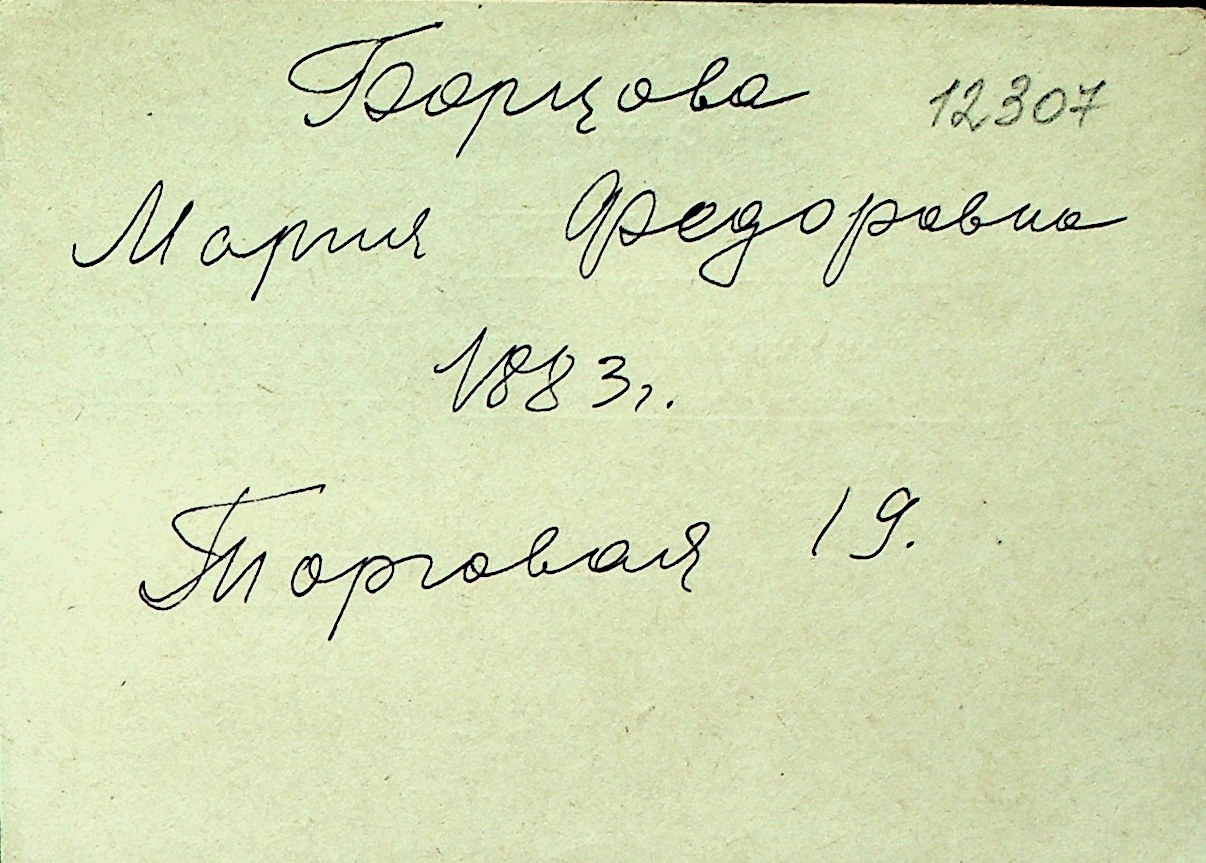 Борцова 12307
Мария Федоровна
1883г.
Торговая 19.